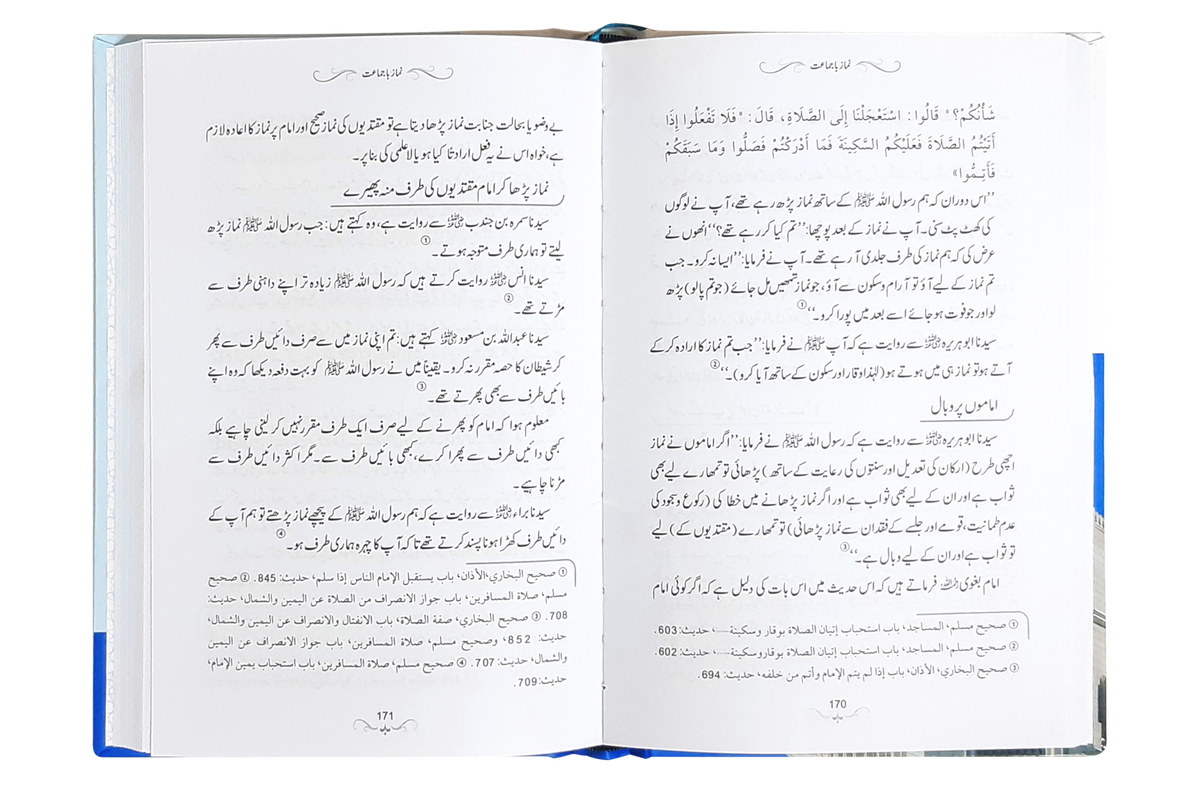 نماز باجماعت
شَأْنُكُمْ؟» قَالُوا: اسْتَعْجَلْنَا إِلَى الصَّلَاةِ، قَالَ: «فَلَا تَفْعَلُوا إِذَا
أَتَيْتُمُ الصَّلَاةَ فَعَلَيْكُمُ السَّكِينَةَ فَمَا أَدْرَكْتُمْ فَصَلُّوا وَمَا سَبَقَكُمْ
فَأَتِمُّوا»
’’اس دوران کہ ہم رسول اللہ ﷺ کے ساتھ نماز پڑھ رہے تھے، آپ نے لوگوں
کی کھٹ پٹ سنی۔ آپ نے نماز کے بعد پوچھا: ’’تم کیا کر رہے تھے؟‘‘ انھوں نے
عرض کی کہ ہم نماز کی طرف جلدی آ رہے تھے۔ آپ نے فرمایا: ’’ایسا نہ کرو۔ جب
تم نماز کے لیے آؤ تو آرام وسکون سے آؤ، جو نماز تمھیں مل جائے (جو تم پالو) پڑھ
لو اور جو فوت ہو جائے اسے بعد میں پورا کرو۔‘‘①
سیدنا ابوہریرہ رضی اللہ عنہ سے روایت ہے کہ آپ ﷺ نے فرمایا: ’’جب تم نماز کا ارادہ کر کے
آتے ہو تو نماز ہی میں ہوتے ہو (لہٰذا وقار اور سکون کے ساتھ آیا کرو)۔‘‘②
اماموں پر وبال
سیدنا ابوہریرہ رضی اللہ عنہ سے روایت ہے کہ رسول اللہ ﷺ نے فرمایا: ’’اگر اماموں نے نماز
اچھی طرح (ارکان کی تعدیل اور سنتوں کی رعایت کے ساتھ) پڑھائی تو تمھارے لیے بھی
ثواب ہے اور ان کے لیے بھی ثواب ہے اور اگر نماز پڑھانے میں خطا کی (رکوع وسجود کی
عدم طمانیت، قومے اور جلسے کے فقدان سے نماز پڑھائی) تو تمھارے (مقتدیوں کے) لیے
تو ثواب ہے اور ان کے لیے وبال ہے۔‘‘③
امام بغوی رحمہ اللہ فرماتے ہیں کہ اس حدیث میں اس بات کی دلیل ہے کہ اگر کوئی امام
① صحيح مسلم، المساجد، باب استحباب إتيان الصلاة بوقار وسكينة...، حديث: 603.
② صحيح مسلم، المساجد، باب استحباب إتيان الصلاة بوقار وسكينة...، حديث: 602.
③ صحيح البخاري، الأذان، باب إذا لم يتم الإمام وأتم من خلفه، حديث: 694.
170
نماز باجماعت
بے وضو یا بحالت جنابت نماز پڑھا دیتا ہے تو مقتدیوں کی نماز صحیح اور امام پر نماز کا اعادہ لازم
ہے، خواہ اس نے یہ فعل ارادتاً کیا ہو یا لاعلمی کی بنا پر۔
نماز پڑھا کر امام مقتدیوں کی طرف منہ پھیرے
سیدنا سمرہ بن جندب رضی اللہ عنہ سے روایت ہے، وہ کہتے ہیں: جب رسول اللہ ﷺ نماز پڑھ
لیتے تو ہماری طرف متوجہ ہوتے۔①
سیدنا انس رضی اللہ عنہ روایت کرتے ہیں کہ رسول اللہ ﷺ زیادہ تر اپنے داہنی طرف سے
مڑتے تھے۔②
سیدنا عبداللہ بن مسعود رضی اللہ عنہ کہتے ہیں: تم اپنی نماز میں سے صرف دائیں طرف سے پھر
کر شیطان کا حصہ مقرر نہ کرو۔ یقیناً میں نے رسول اللہ ﷺ کو بہت دفعہ دیکھا کہ وہ اپنے
بائیں طرف سے بھی پھرتے تھے۔③
معلوم ہوا کہ امام کو پھرنے کے لیے صرف ایک طرف مقرر نہیں کر لینی چاہیے بلکہ
کبھی دائیں طرف سے پھرا کرے، کبھی بائیں طرف سے۔ مگر اکثر دائیں طرف سے
مڑنا چاہیے۔
سیدنا براء رضی اللہ عنہ سے روایت ہے کہ ہم رسول اللہ ﷺ کے پیچھے نماز پڑھتے تو ہم آپ کے
دائیں طرف کھڑا ہونا پسند کرتے تھے تاکہ آپ کا چہرہ ہماری طرف ہو۔④
① صحيح البخاري، الأذان، باب يستقبل الإمام الناس إذا سلم، حديث: 845. ② صحيح
مسلم، صلاة المسافرين، باب جواز الانصراف من الصلاة عن اليمين والشمال، حديث:
708. ③ صحيح البخاري، صفة الصلاة، باب الانفتال والانصراف عن اليمين والشمال،
حديث: 852، وصحيح مسلم، صلاة المسافرين، باب جواز الانصراف عن اليمين
والشمال، حديث: 707. ④ صحيح مسلم، صلاة المسافرين، باب استحباب يمين الإمام،
حديث: 709.
171